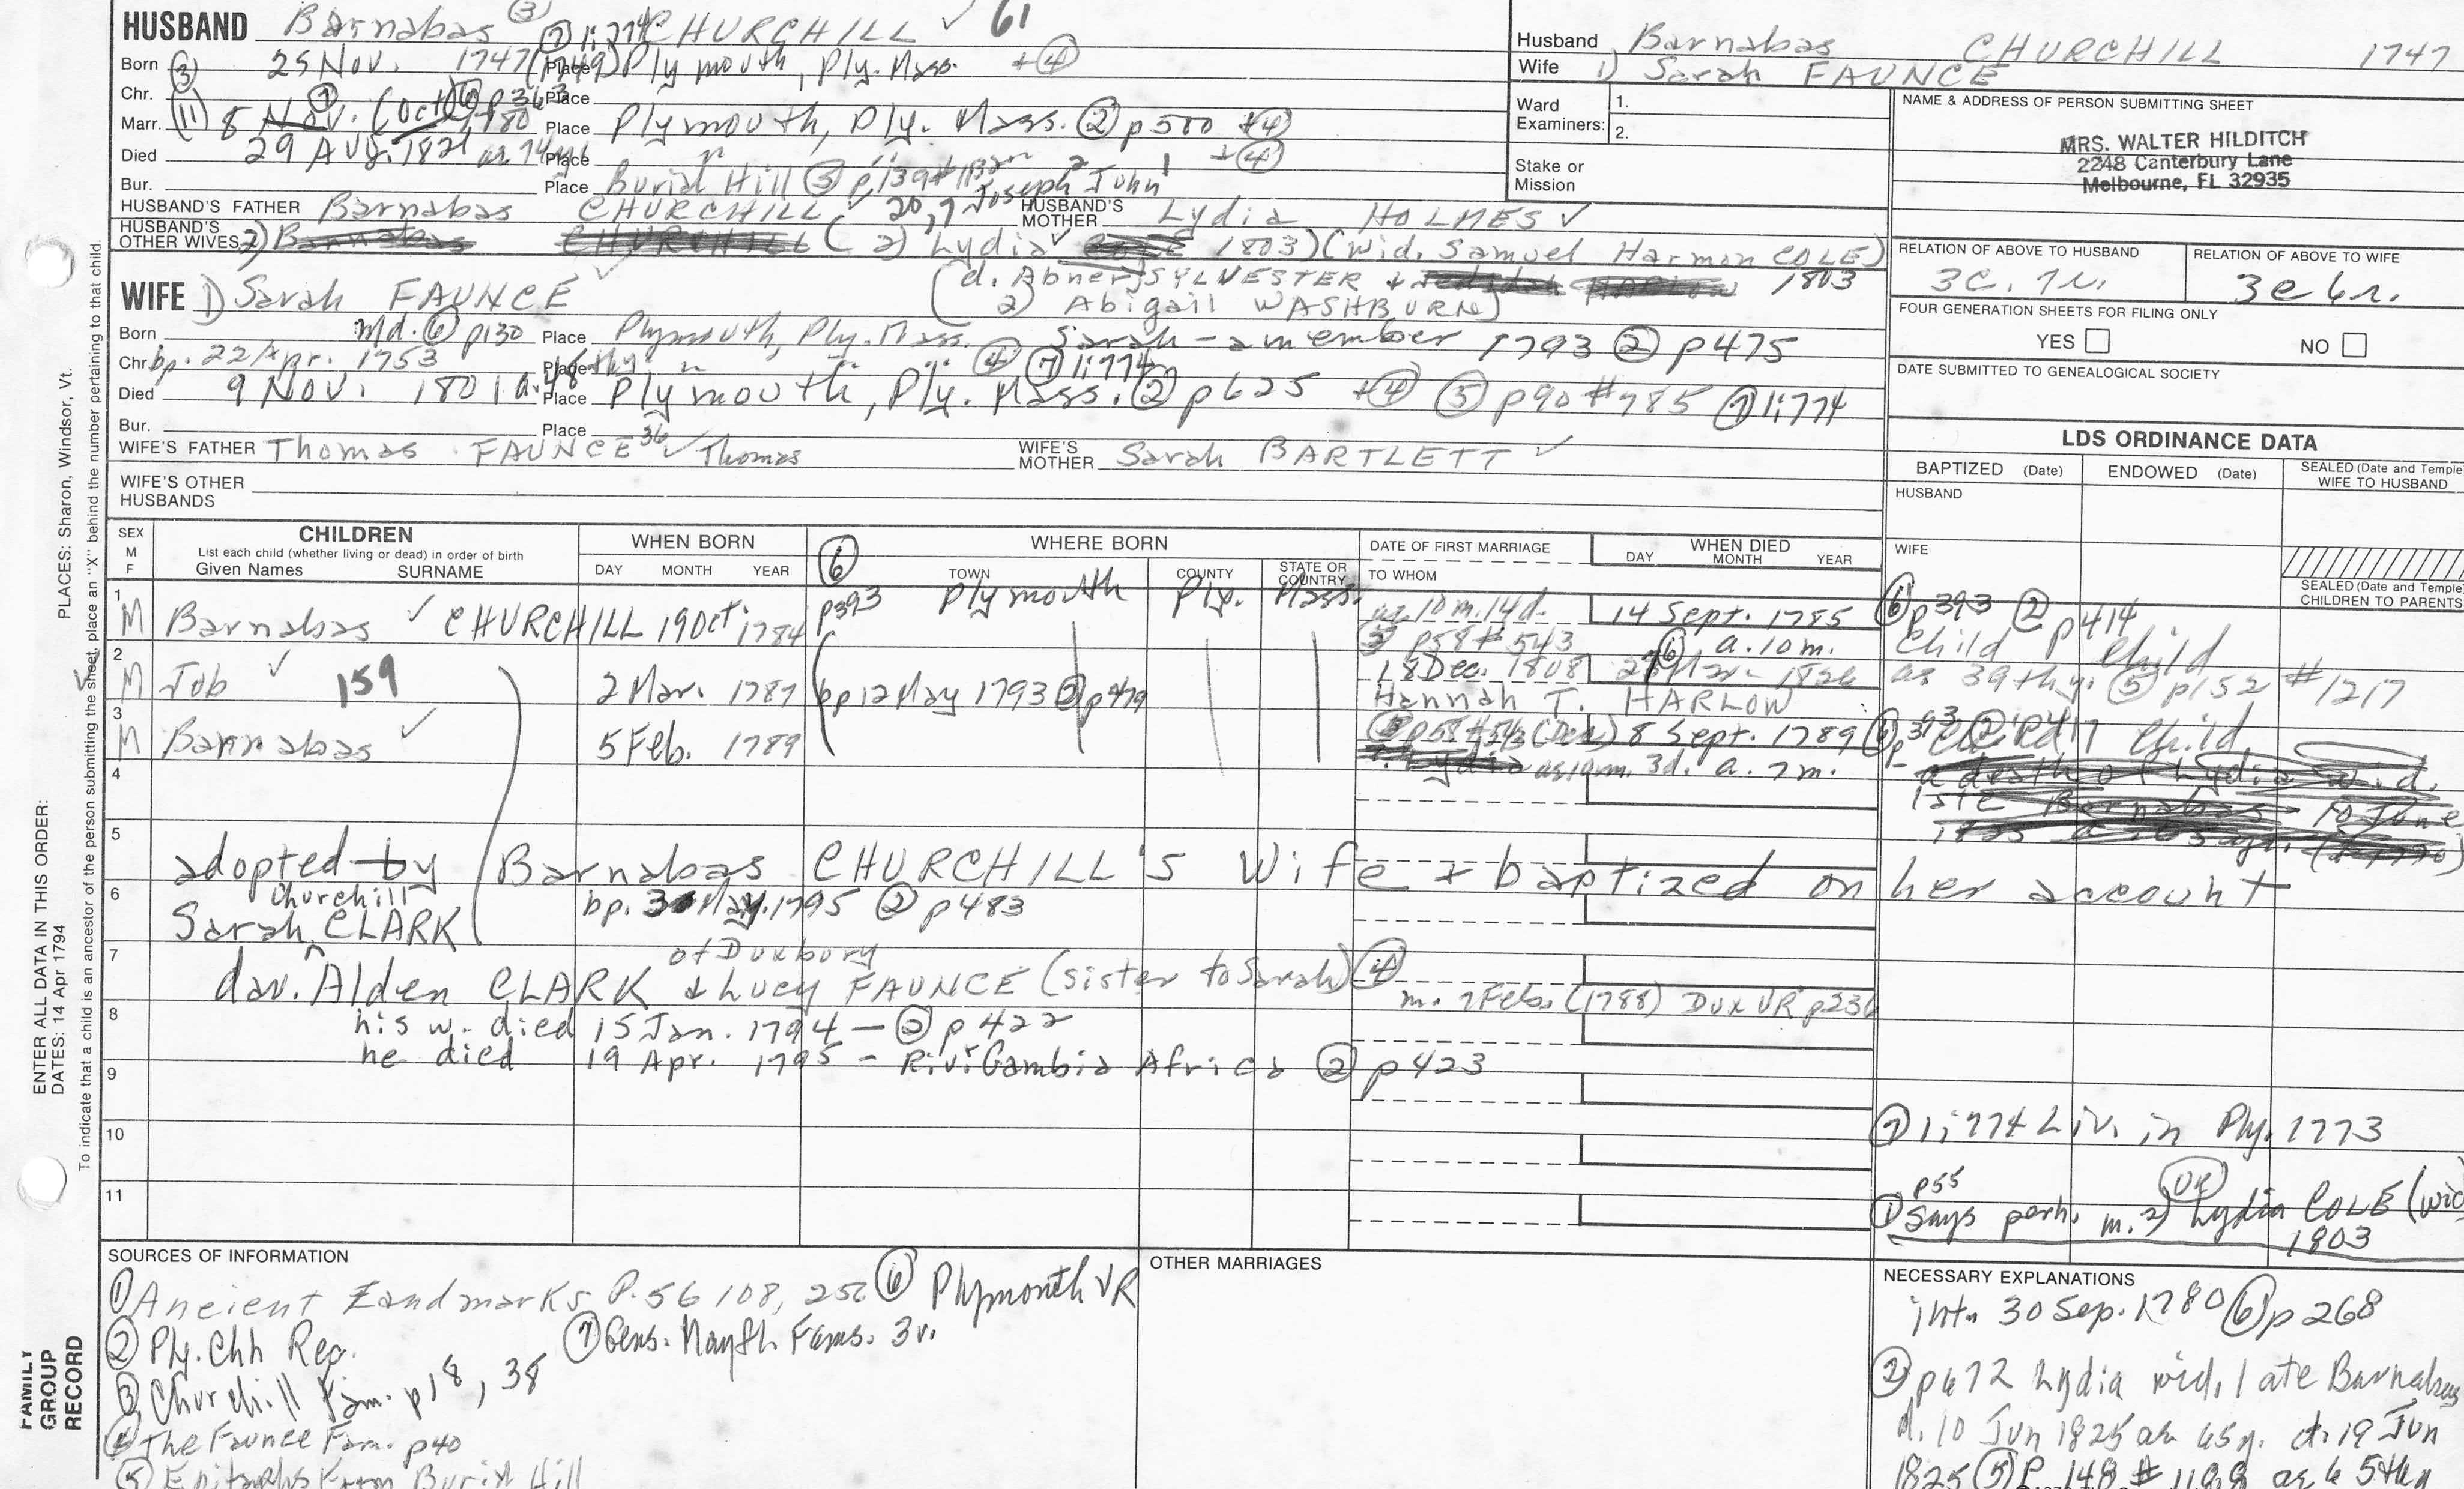 HUSBAND Barnabas ③ ⑦ 1:774 CHURCHILL ✓ 61
Born ③ 25 Nov. 1747 (1749) Place Plymouth, Ply. Mass. +④
Chr. Place
Marr. (11) 8 Nov. (Oct) ⑥ p363 1780 Place Plymouth, Ply. Mass. ② p500 +④
Died 29 Aug. 1821 Place " +④
Bur. Place Burial Hill ⑤ p.139
HUSBAND'S FATHER Barnabas CHURCHILL ✓ 20, 9 Joseph John HUSBAND'S MOTHER Lydia HOLMES ✓
HUSBAND'S OTHER WIVES 2) Barnabas CHURCHILL ( 2) Lydia ✓ 1803) (wid. Samuel Harmon COLE)
(d. Abner SYLVESTER + 1803
2) Abigail WASHBURN)
WIFE 1) Sarah FAUNCE
Born Md. ⑥ p130 Place Plymouth, Ply. Mass. Sarah - a member 1793 ② p475
Chr. bp. 22 Apr. 1753 Place ④ ⑦ 1:774
Died 9 Nov. 1801 a. 48 Place Plymouth, Ply. Mass. ② p625 +④ ⑤ p90 #785 ⑦ 1:774
Bur. Place
WIFE'S FATHER Thomas FAUNCE 36 ✓ Thomas WIFE'S MOTHER Sarah BARTLETT ✓
WIFE'S OTHER HUSBANDS
Husband Barnabas CHURCHILL 1747
Wife 1) Sarah FAUNCE
Ward Examiners: 1.
2.
Stake or Mission
NAME & ADDRESS OF PERSON SUBMITTING SHEET
MRS. WALTER HILDITCH
2248 Canterbury Lane
Melbourne, FL 32935
RELATION OF ABOVE TO HUSBAND RELATION OF ABOVE TO WIFE
3c. 7r. 3c 6r.
FOUR GENERATION SHEETS FOR FILING ONLY
YES NO
DATE SUBMITTED TO GENEALOGICAL SOCIETY
LDS ORDINANCE DATA
BAPTIZED (Date) ENDOWED (Date) SEALED (Date and Temple WIFE TO HUSBAND
HUSBAND
WIFE
SEALED (Date and Temple) CHILDREN TO PARENTS
SEX M F
CHILDREN
List each child (whether living or dead) in order of birth
Given Names SURNAME
WHEN BORN
DAY MONTH YEAR
⑥ WHERE BORN
TOWN COUNTY STATE OR COUNTRY
DATE OF FIRST MARRIAGE
TO WHOM
WHEN DIED
DAY MONTH YEAR
1 M Barnabas ✓ CHURCHILL 19 Oct. 1784 p393 Plymouth Ply. Mass. ag. 10 m. 14 d. 14 Sept. 1785 ⑥ p393 ② p414
⑤ p58 #543 a. 10 m. Child Child
2 M Job ✓ 159 2 Mar. 1787 (bp 12 May 1793 ② p479 18 Dec. 1808 1826 as 39thy. ⑤ p152 #1217
Hannah T. HARLOW
3 M Barnabas ✓ 5 Feb. 1789 8 Sept. 1789 Child
3d. a. 7 m.
4
5
adopted by Barnabas CHURCHILL's Wife + baptized on her account
6 Churchill
Sarah CLARK bp. 3 May 1795 ② p483
7 of Duxbury
dau. Alden CLARK & Lucy FAUNCE (sister to Sarah) ④
m. 7 Feb. (1788) Dux VR p236
8 his w. died 15 Jan. 1794 — ② p422
he died 19 Apr. 1795 - Rivr Gambia Africa ② p423
9
10
11
⑦ 1:774 Liv. in Ply. 1773
p55 VR
① Says perh. m. 2) Lydia COLE (wid
1803
SOURCES OF INFORMATION
① Ancient Landmarks P. 56 108, ⑥ Plymouth VR
② Ply. Chh Rec. ⑦ Gens. Mayfl. Fams. 3v.
③ Churchill Fam. p18, 38
④ The Faunce Fam. p40
⑤ Epitaphs From Burial Hill
OTHER MARRIAGES
NECESSARY EXPLANATIONS
int. 30 Sep. 1780 ⑥ p268
② p672 Lydia wid. late Barnabas
d. 10 Jun 1825 as 65y. d. 19 Jun
1825 ⑤ P. 148 #
PLACES: Sharon, Windsor, Vt.
ENTER ALL DATA IN THIS ORDER:
DATES: 14 Apr 1794
To indicate that a child is an ancestor of the person submitting the sheet, place an "X" behind the number pertaining to that child.
FAMILY
GROUP
RECORD